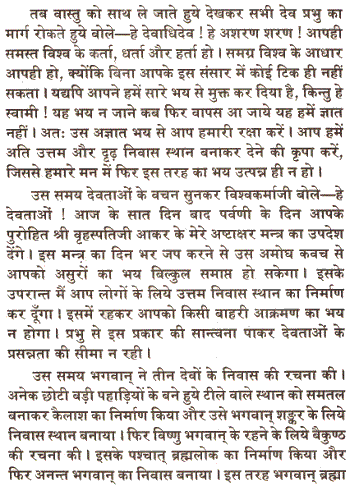 तब वास्तु को साथ ले जाते हुये देखकर सभी देव प्रभु का
मार्ग रोकते हुये बोले—हे देवाधिदेव ! हे अशरण शरण ! आपही
समस्त विश्व के कर्ता, धर्ता और हर्ता हो। समग्र विश्व के आधार
आपही हो, क्योंकि बिना आपके इस संसार में कोई टिक ही नहीं
सकता। यद्यपि आपने हमें सारे भय से मुक्त कर दिया है, किन्तु हे
स्वामी ! यह भय न जाने कब फिर वापस आ जाये यह हमें ज्ञात
नहीं। अतः उस अज्ञात भय से आप हमारी रक्षा करें। आप हमें
अति उत्तम और दृढ़ निवास स्थान बनाकर देने की कृपा करें,
जिससे हमारे मन में फिर इस तरह का भय उत्पन्न ही न हो।
उस समय देवताओं के वचन सुनकर विश्वकर्माजी बोले—हे
देवताओं ! आज के सात दिन बाद पर्वणी के दिन आपके
पुरोहित श्री वृहस्पतिजी आकर के मेरे अष्टाक्षर मन्त्र का उपदेश
देंगे। इस मन्त्र का दिन भर जप करने से उस अमोघ कवच से
आपको असुरों का भय बिल्कुल समाप्त हो सकेगा। इसके
उपरान्त मैं आप लोगों के लिये उत्तम निवास स्थान का निर्माण
कर दूँगा। इसमें रहकर आपको किसी बाहरी आक्रमण का भय
न होगा। प्रभु से इस प्रकार की सान्त्वना पाकर देवताओं के
प्रसन्नता की सीमा न रही।
उस समय भगवान् ने तीन देवों के निवास की रचना की।
अनेक छोटी बड़ी पहाड़ियों के बने हुये टीले वाले स्थान को समतल
बनाकर कैलाश का निर्माण किया और उसे भगवान् शङ्कर के लिये
निवास स्थान बनाया। फिर विष्णु भगवान् के रहने के लिये बैकुण्ठ
की रचना की। इसके पश्चात् ब्रह्मलोक का निर्माण किया और
फिर अनन्त भगवान् का निवास बनाया। इस तरह भगवान् ब्रह्मा